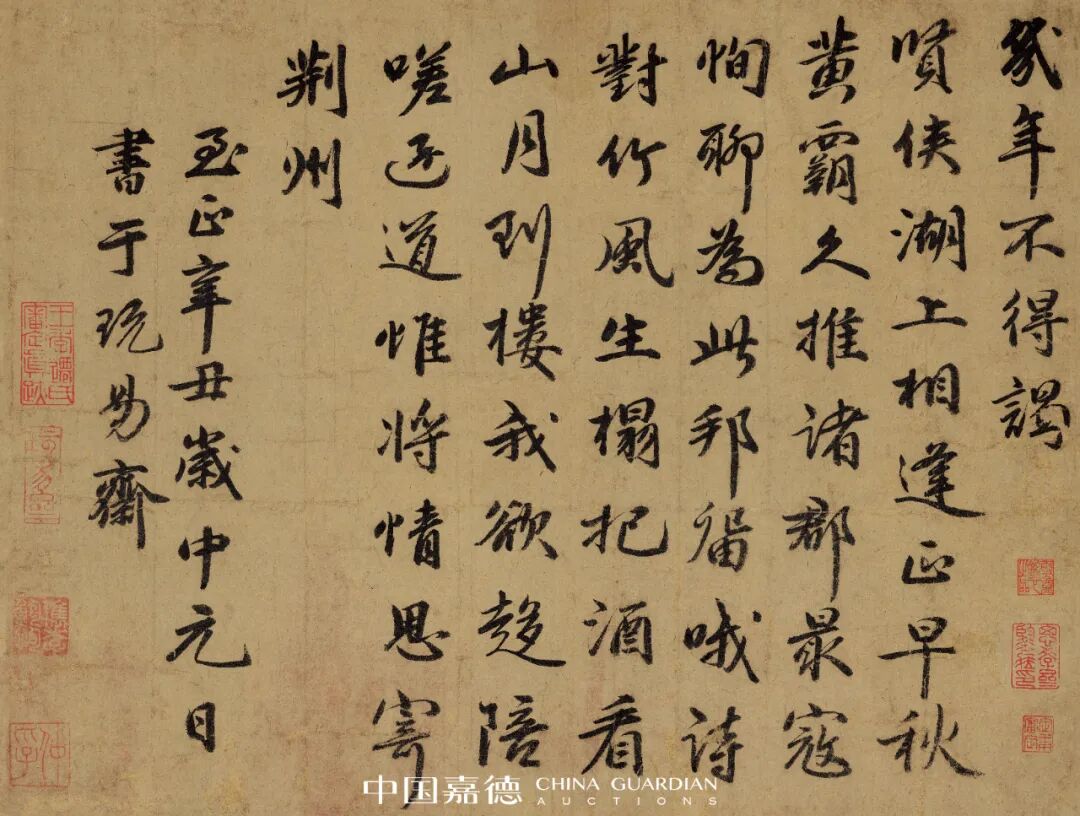 幾年不得謁
賢侯湖上相逢正早秋
黄霸久推諸郡最寇
恂聊為此邦留哦詩
對竹風生榻把酒看
山月到樓我欲趍陪
嗟迂道惟將情思寄
荆州
至正辛丑歲中元日
書于玩易齋
中国嘉德
CHINA GUARDIAN
AUCTIONS